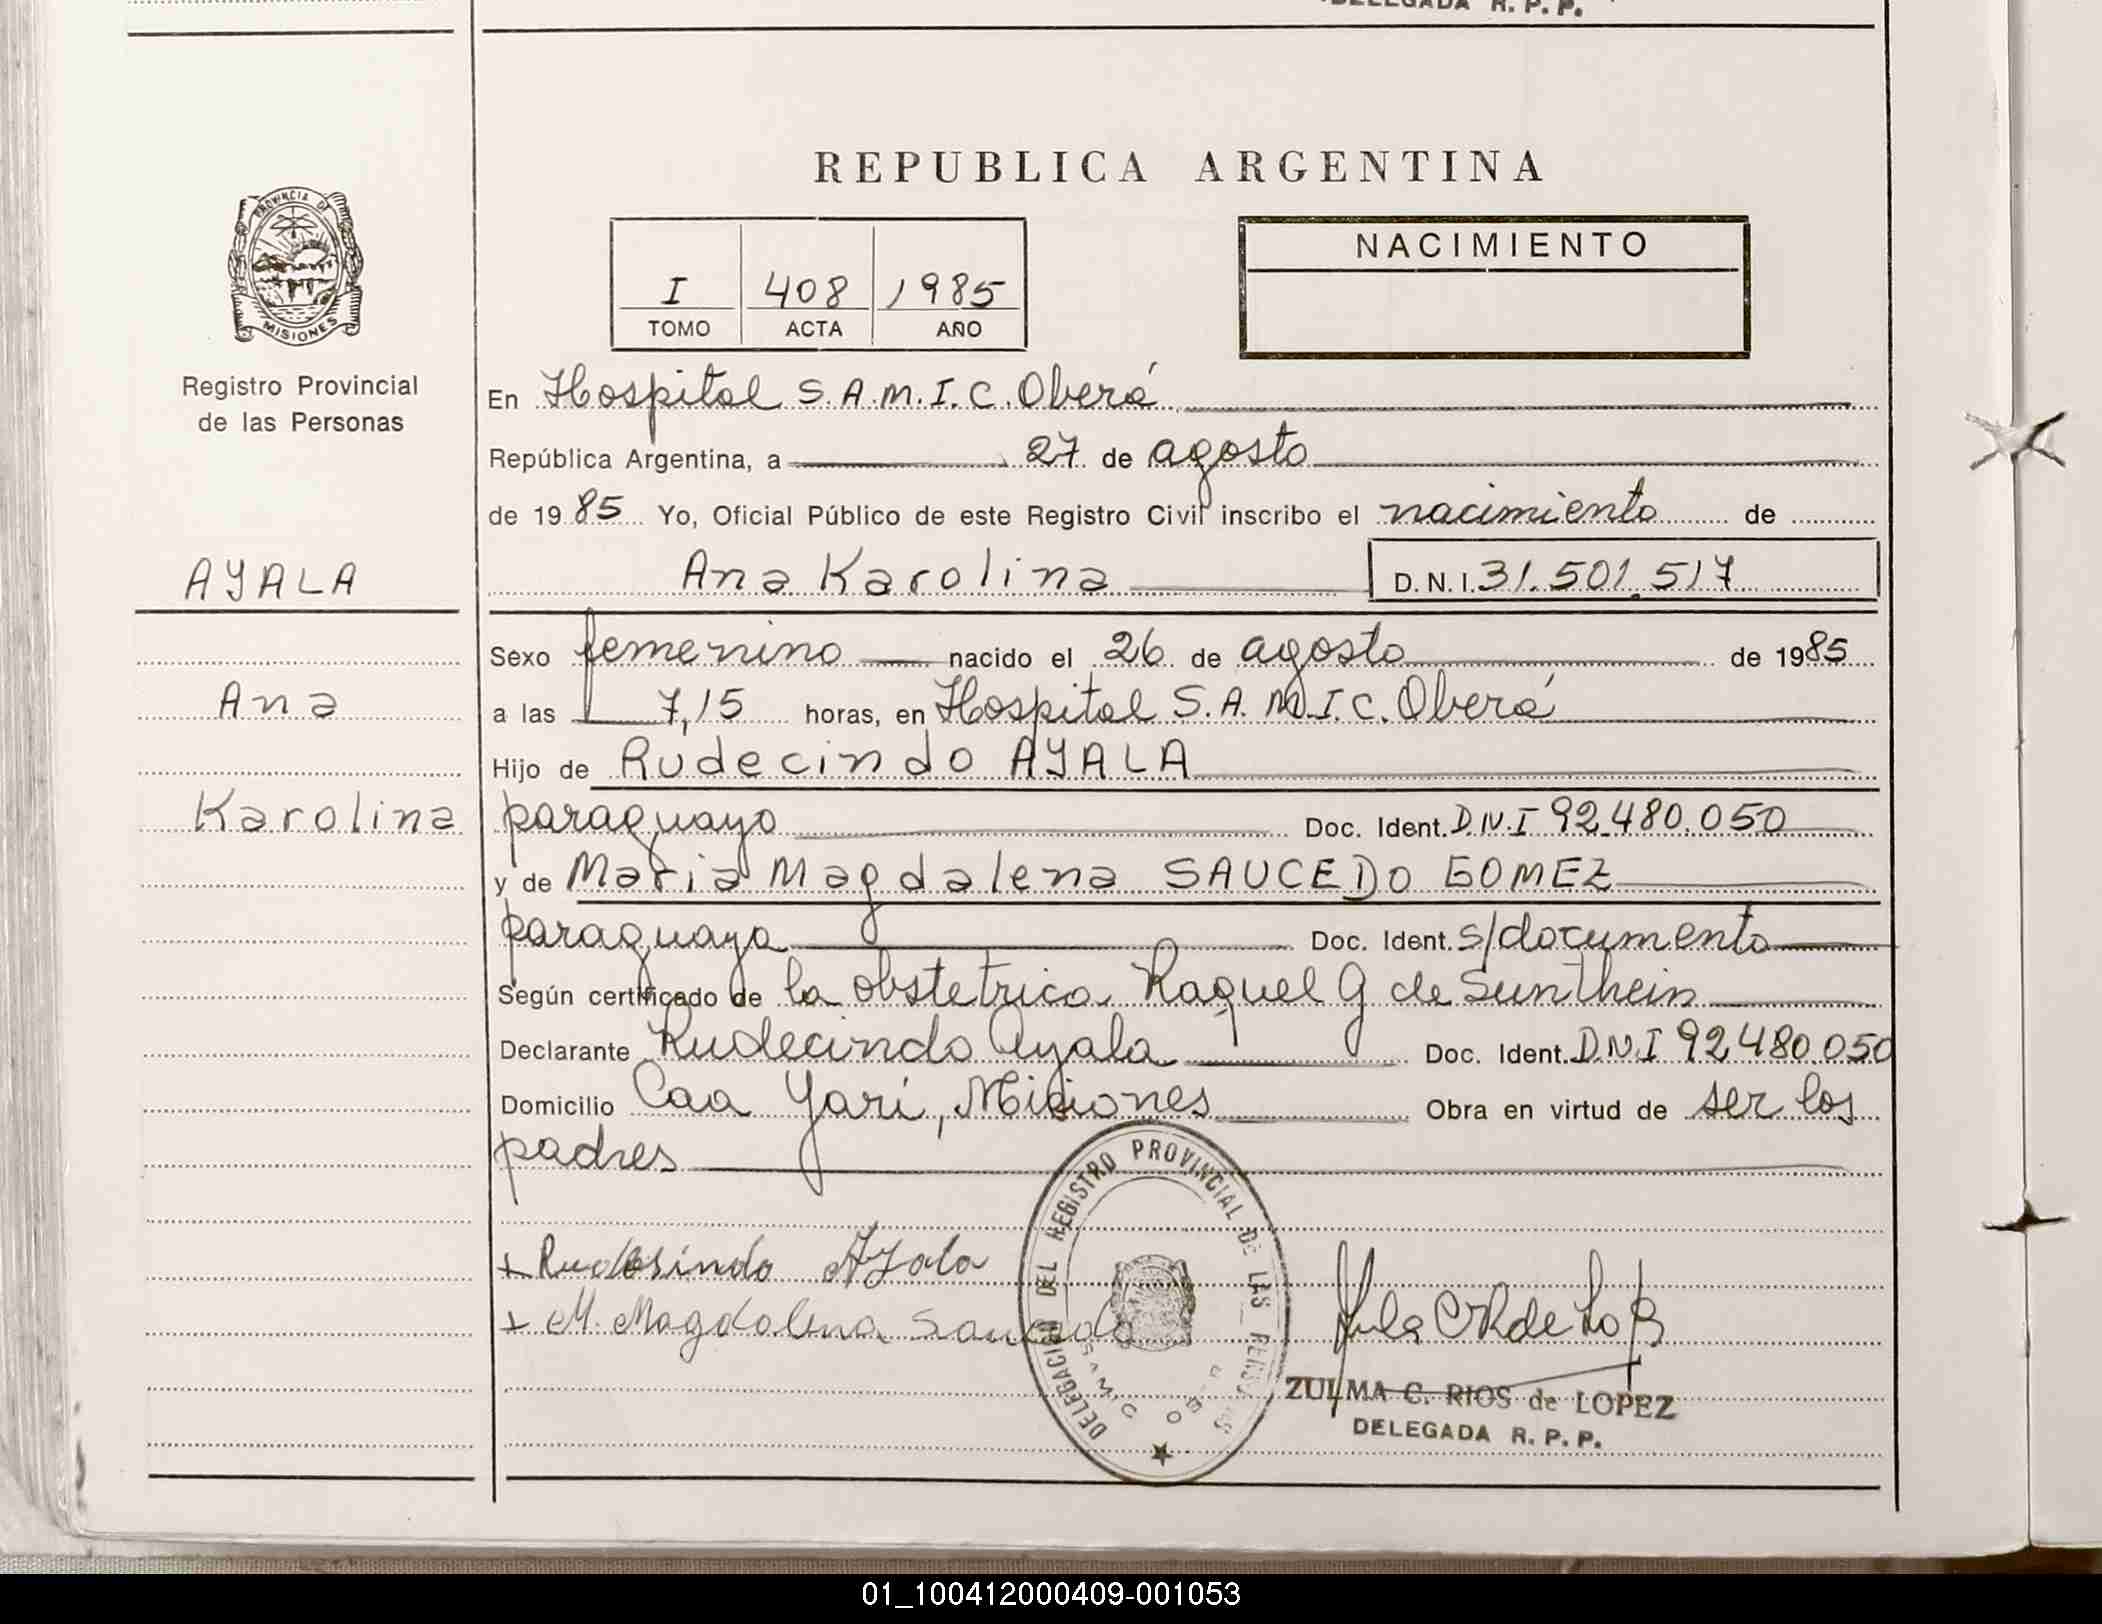 DELEGADA R. P. P.
REPUBLICA ARGENTINA
PROVINCIA DE
MISIONES
Registro Provincial
de las Personas
I 408 1985
TOMO ACTA AÑO
NACIMIENTO
En Hospital S.A.M.I.C. Oberá
República Argentina, a 27 de agosto
de 1985 Yo, Oficial Público de este Registro Civil inscribo el nacimiento de
AYALA
Ana Karolina D.N.I. 31.501.517
Sexo femenino nacido el 26 de agosto de 1985
Ana
a las 7,15 horas, en Hospital S.A.M.I.C. Oberá
Hijo de Rudecindo AYALA
Karolina
paraguayo Doc. Ident. D.N.I 92.480.050
y de Maria Magdalena SAUCEDO GOMEZ
paraguaya Doc. Ident. s/documento
Según certificado de la obstetrica Raquel G de Sunthein
Declarante Rudecindo Ayala Doc. Ident. D.N.I 92.480.050
Domicilio Caa Yarí, Misiones Obra en virtud de ser los
padres
DELEGACION DEL REGISTRO PROVINCIAL DE LAS PERSONAS
SAMIC OBERA
+ Rudesindo Ayala
+ M. Magdalena Saucedo
ZULMA C. RIOS de LOPEZ
DELEGADA R. P. P.
01_100412000409-001053